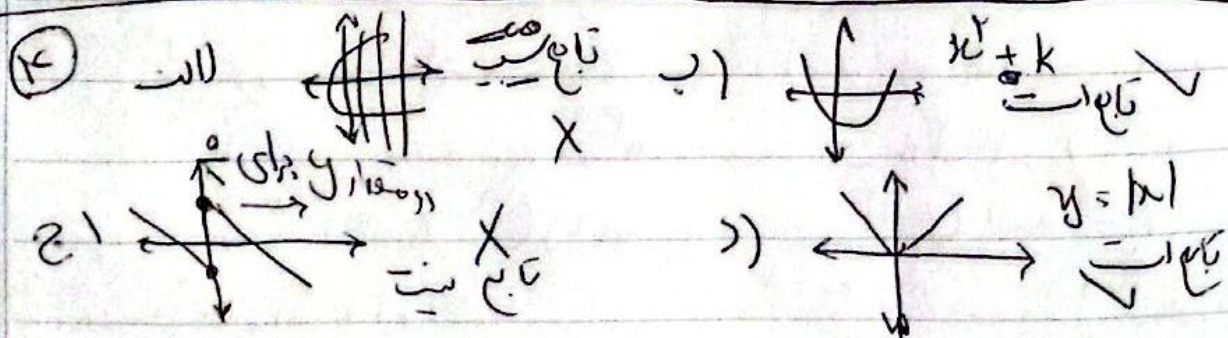 ۴ الف تابع نیست ب) x² + k
X تابع است ✓
ج) دو مقدار y برای ۰ X د) y = |x|
تابع نیست تابع است ✓